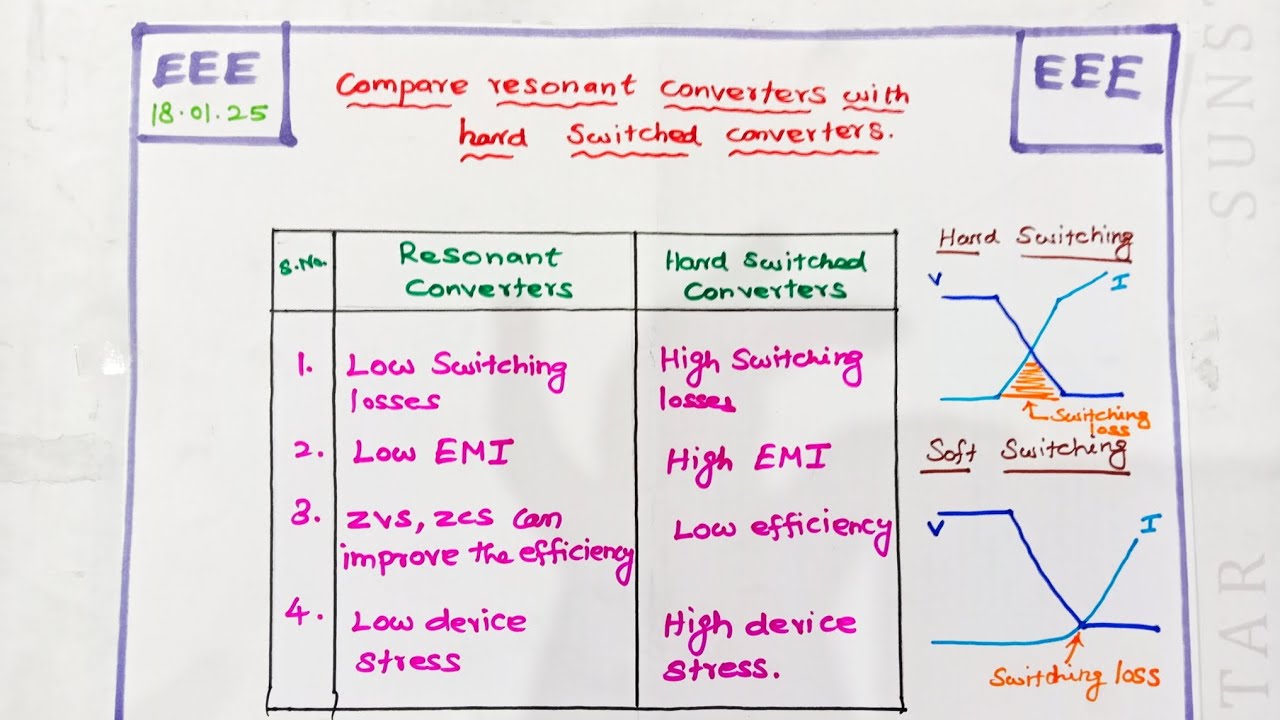 EEE
18.01.25
EEE
Compare resonant converters with
hard switched converters.
S.No.
Resonant
Converters
Hard Switched
Converters
1.
Low Switching
losses
High Switching
losses
2.
Low EMI
High EMI
3.
ZVS, ZCS can
improve the efficiency
Low efficiency
4.
Low device
stress
High device
stress.
Hard Switching
V
I
Switching
loss
Soft Switching
V
I
Switching loss
SUNS
TAR